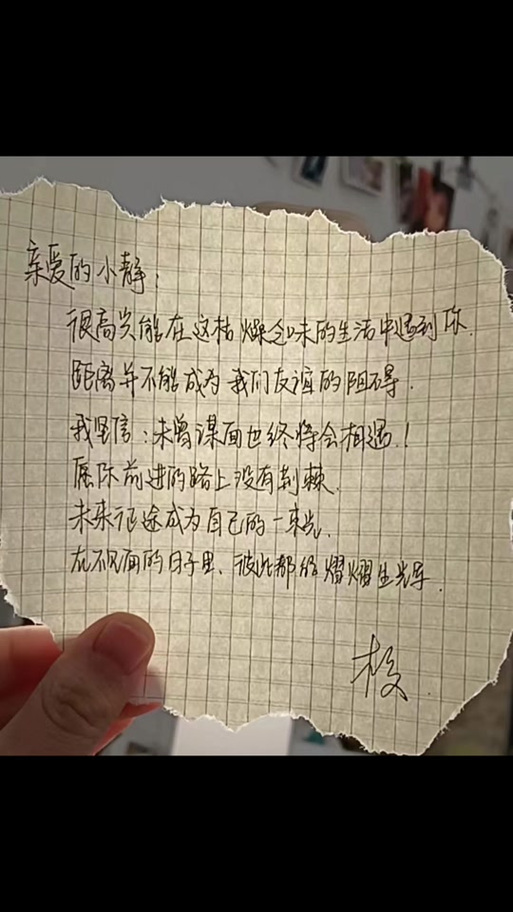 亲爱的小静：
很高兴能在这枯燥乏味的生活中遇到你.
距离并不能成为我们友谊的阻碍.
我坚信：未曾谋面也终将会相遇.！
愿你前进的路上没有荆棘.
未来征途成为自己的一束光.
在不见面的日子里、彼此都能熠熠生光.